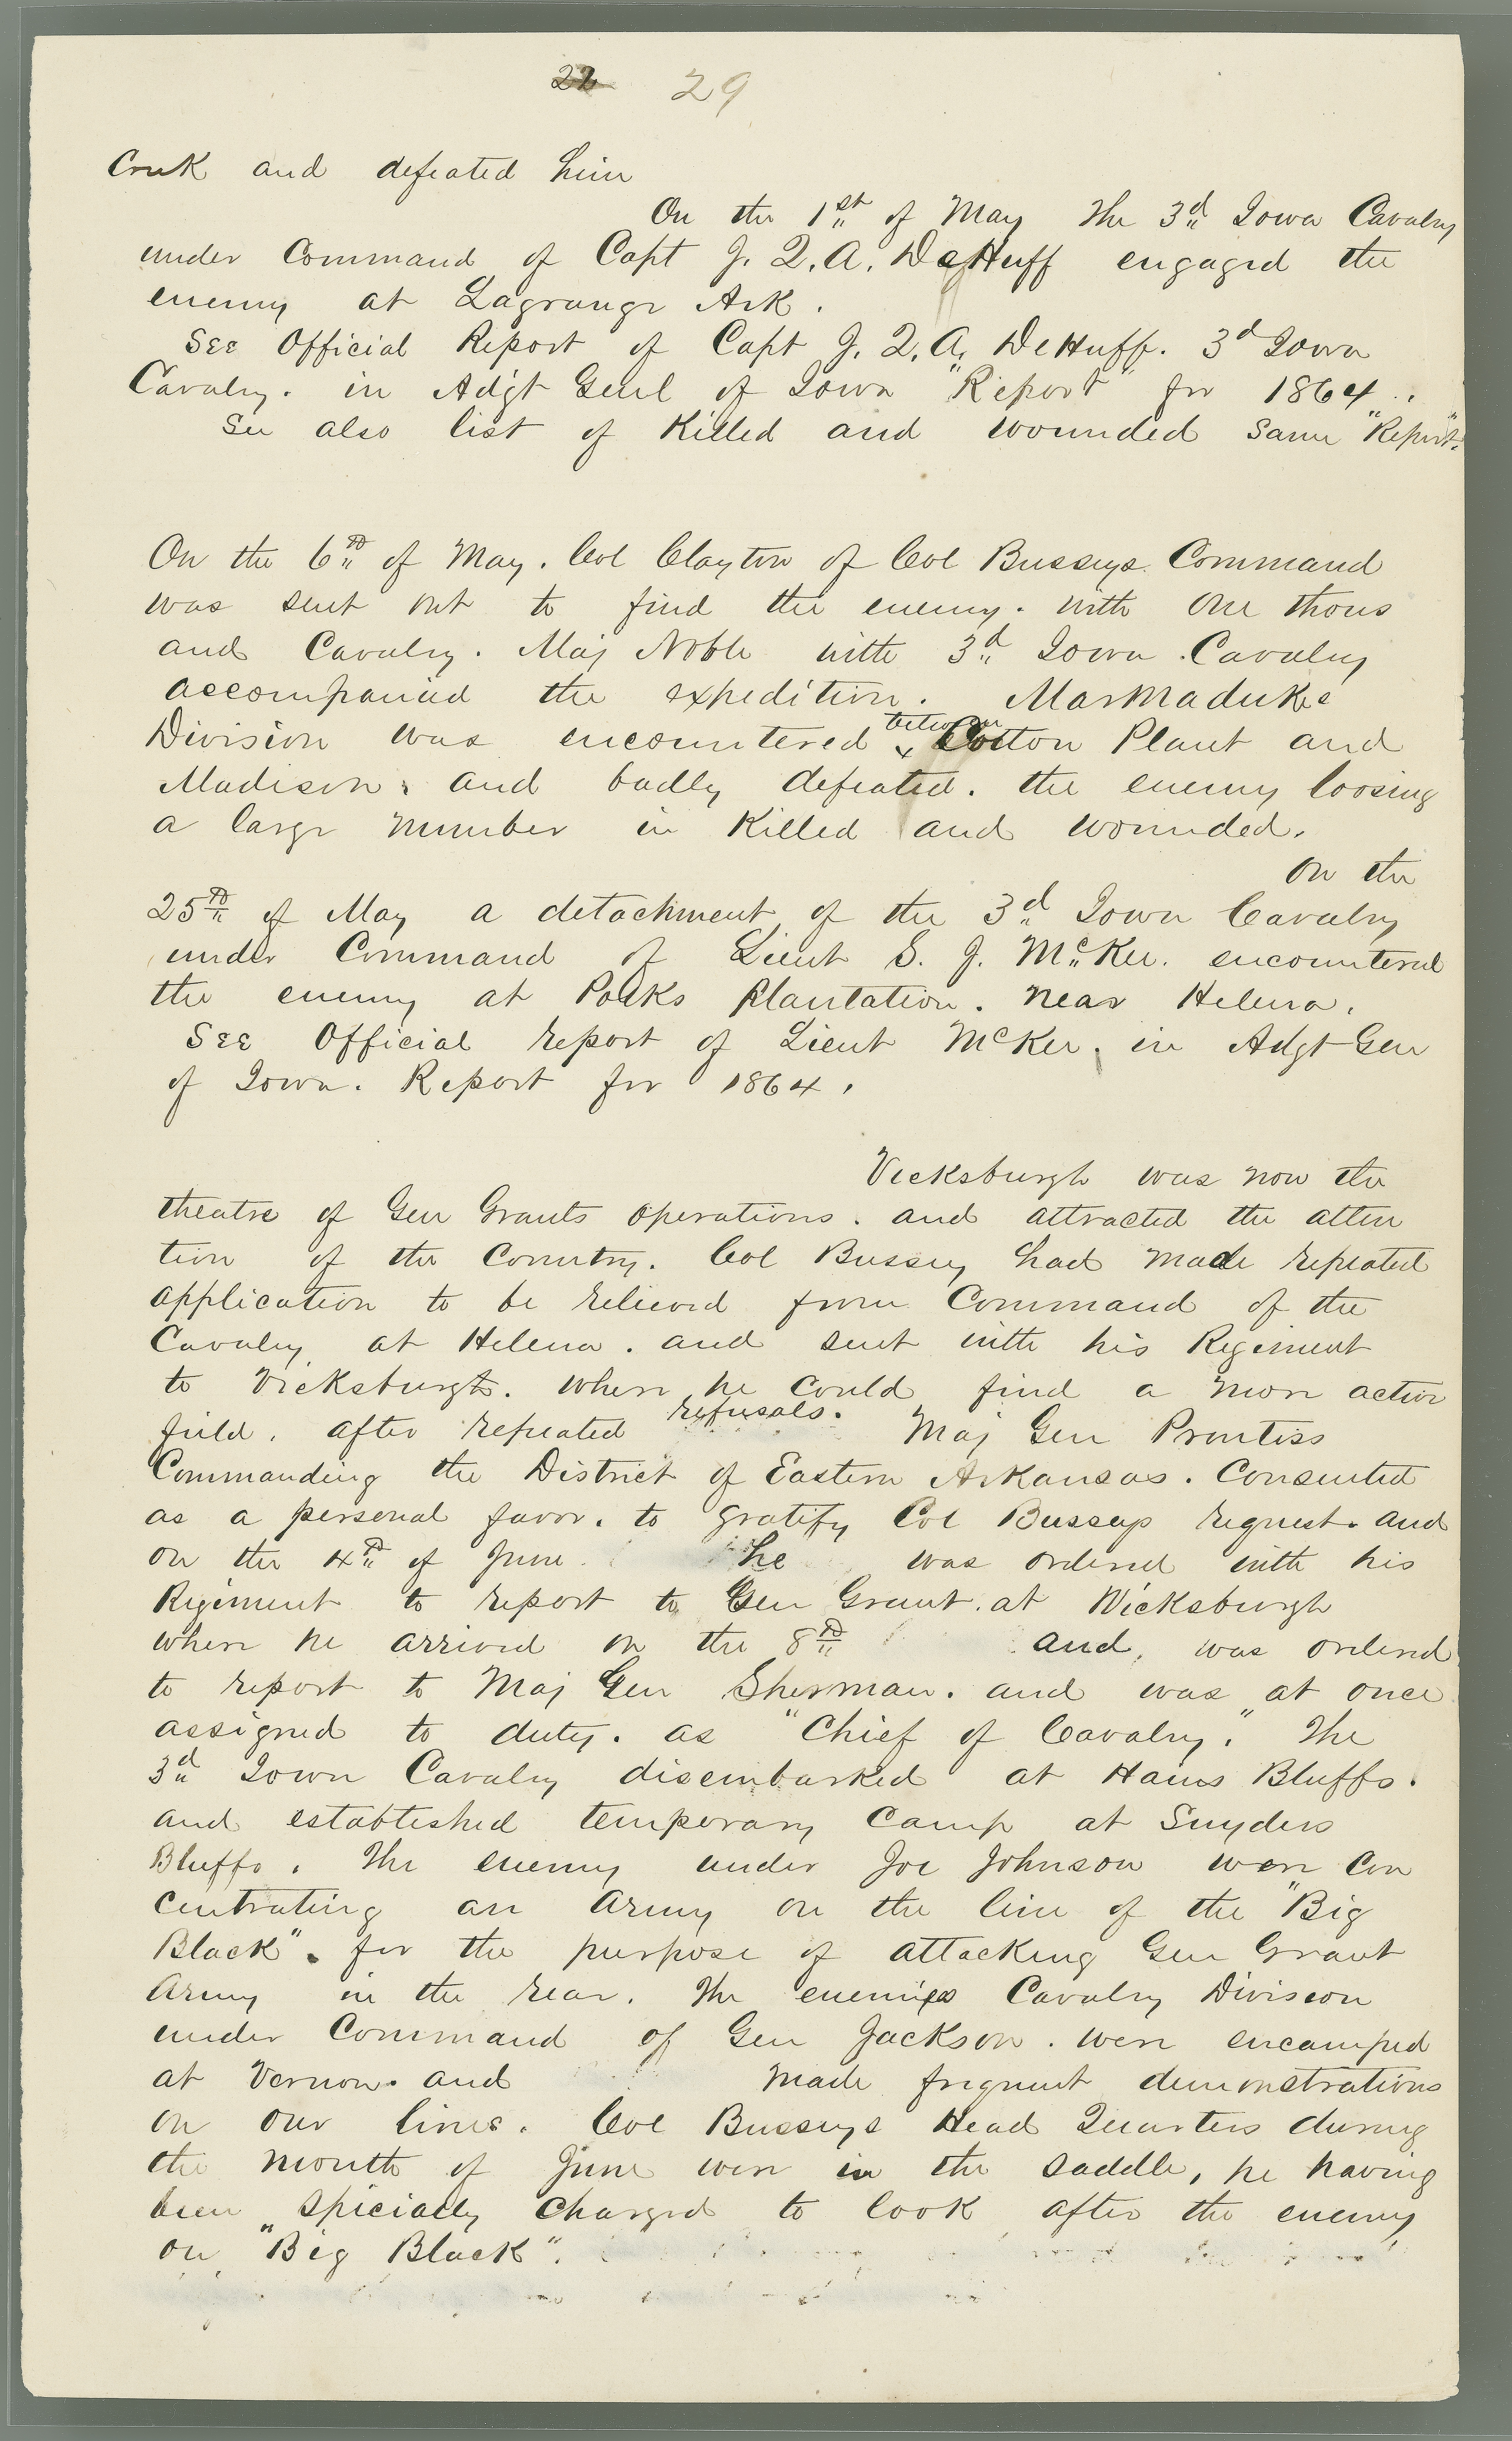 22 29
Creek and defeated him
On the 1st of May The 3d Iowa Cavalry
under Command of Capt J. Q. A. DeHuff engaged the
enemy at Lagrange Ark.
See Official Report of Capt J. Q. A. DeHuff. 3d Iowa
Cavalry. in Adgt Genl of Iowa "Report" for 1864.
See also list of Killed and wounded same "Report".
On the 6th of May. Col Clayton of Col Busseys Command
was sent out to find the enemy. with One thous
and Cavalry. Maj Noble with 3d Iowa Cavalry
accompanied the expedition. Marmadukes
Division was encountered between Cotton Plant and
Madison, and badly defeated. the enemy loosing
a large number in Killed and wounded.
On the
25th of May a detachment of the 3d Iowa Cavalry
under Command of Lieut S. J. McKee. encountered
the enemy at Polks Plantation. near Helena.
See Official report of Lieut McKee, in Adgt Gen
of Iowa. Report for 1864.
Vicksburgh was now the
theatre of Gen Grants operations. and attracted the atten
tion of the Country. Col Bussey had made repeated
application to be relieved from Command of the
Cavalry at Helena. and sent with his Regiment
to Vicksburgh. where he could find a more active
field. after repeated refusals. Maj Gen Prentiss
Commanding the District of Eastern Arkansas. Consented
as a personal favor. to gratify Col Busseys request. and
on the 4th of June he was ordered with his
Regiment to report to Gen Grant. at Vicksburgh
where he arrived on the 8th and, was ordered
to report to Maj Gen Sherman. and was at once
assigned to duty. as "Chief of Cavalry." The
3d Iowa Cavalry disembarked at Hains Bluffs.
and established temporary Camp at Snyders
Bluffs. The enemy under Joe Johnson were Con
centrating an Army on the line of the "Big
Black". for the purpose of attacking Gen Grant
Army in the rear. The enemies Cavalry Division
under Command of Gen Jackson. were encamped
at Vernon. and made frequent demonstrations
on our lines. Col Busseys Head Quarters during
the month of June were in the saddle, he having
been specially charged to look after the enemy
on "Big Black".